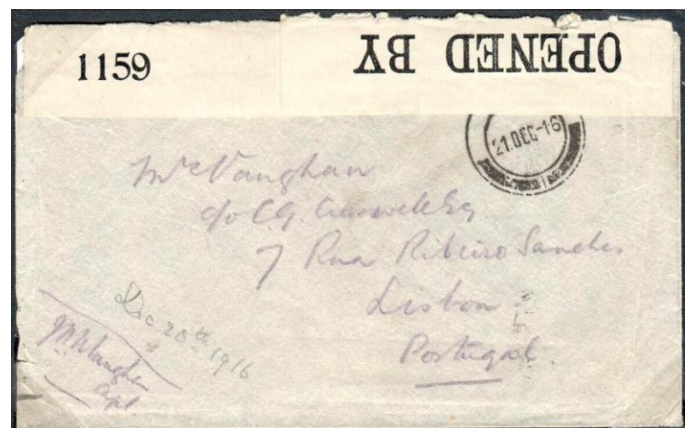 1159
OPENED BY
21.DEC-16
Mrs Vaughan
c/o C.G. Esq
7 Rua Ribeiro Sanches
Lisbon
Portugal.
Dec 20th 1916
Vaughan
Capt.